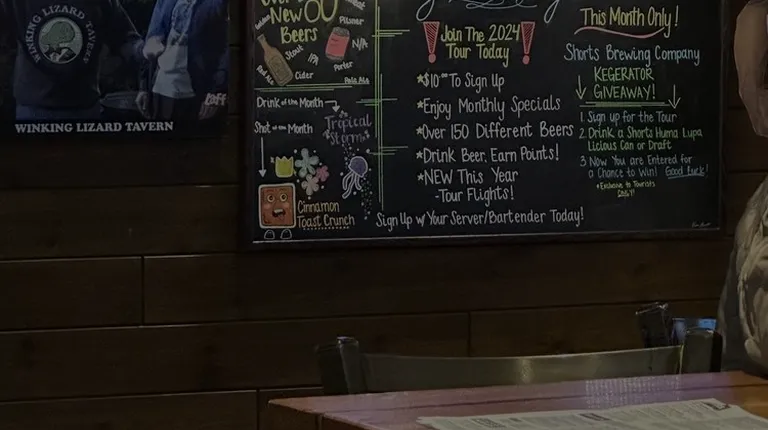 WINKING LIZARD TAVERN
WINKING LIZARD TAVERN
New 60
Beers
Pilsner
N/A
Stout
IPA
Porter
Red Ale
Cider
Pale Ale
Drink of the Month
Tropical
Storm
Shot of the Month
Cinnamon
Toast Crunch
Join The 2024
Tour Today
*$10.00 To Sign Up
*Enjoy Monthly Specials
*Over 150 Different Beers
*Drink Beer, Earn Points!
*NEW This Year
-Tour Flights!
Sign Up w/ Your Server/Bartender Today!
This Month Only!
Shorts Brewing Company
KEGERATOR
GIVEAWAY!
1. Sign up for the Tour
2. Drink a Shorts Huma Lupa
Licious Can or Draft
3 Now You are Entered for
a Chance to Win! Good Luck!
*Exclusive to Tourists
ONLY!